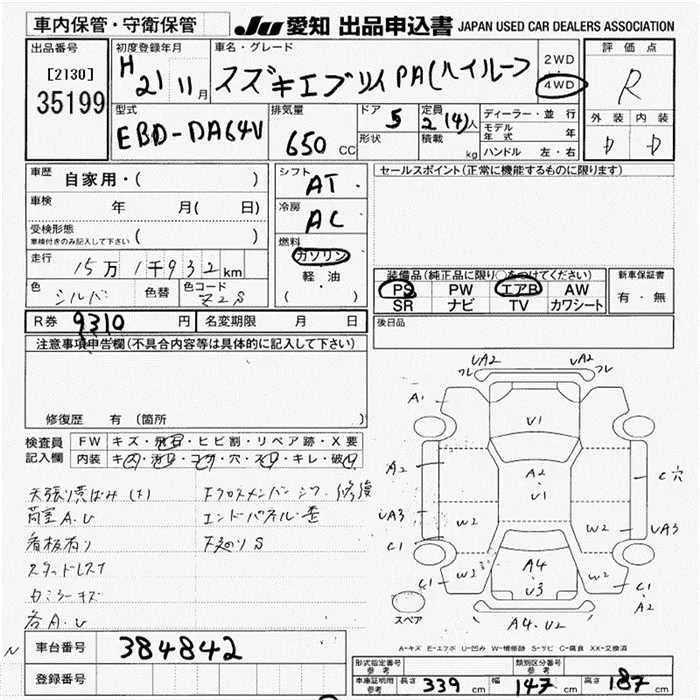 車内保管・守衛保管
JU 愛知 出品申込書 JAPAN USED CAR DEALERS ASSOCIATION
出品番号
[2130]
35199
初度登録年月
H21 11月
車名・グレード
スズキエブリイPA(ハイルーフ
2WD
4WD
評価点
R
外装 内装
D D
型式
EBD-DA64V
排気量
650 CC
ドア 5
形状
定員 2(4)人
積載 kg
ディーラー・並行
モデル年式 年
ハンドル 左・右
車歴 自家用・( )
車検 年 月( 日)
受検形態
車検付きのみ記入して下さい ( )
走行 15万1千932km
色 シルバ 色替 色コード Z2S
シフト AT
冷房 AC
燃料
ガソリン
軽・油
( )
セールスポイント(正常に機能するものに限ります)
装備品(純正品に限り○をつけてください)
PS PW エアB AW
SR ナビ TV カワシート
新車保証書
有・無
R券 9310 円 名変期限 月 日
後日品
注意事項申告欄(不具合内容等は具体的に記入して下さい)
修復歴 有 (箇所 )
検査員記入欄
FW キズ・飛石・ヒビ割・リペア跡・X要
内装 キズ・汚れ・コゲ・穴・スレ・キレ・破れ
荷室A.U
看板有り
スタッドレス
各A.U
エンドパネル歪
下廻りS
UA2 UA2
フレ フレ
A1
V1
A2 A2 C穴
U1
UA3 W2 W2 UA3
C1
C1 W2 A4 W2 C1
U3 A2
スペア
A4.U2
A-キズ E-エクボ U-凹み W-補修跡 S-サビ C-腐食 XX-交換済
N
車台番号 384842
登録番号
形式指定番号 参考
類別区分番号 参考
車庫証明用 参考 長さ 339 cm 幅 147 cm 高さ 187 cm